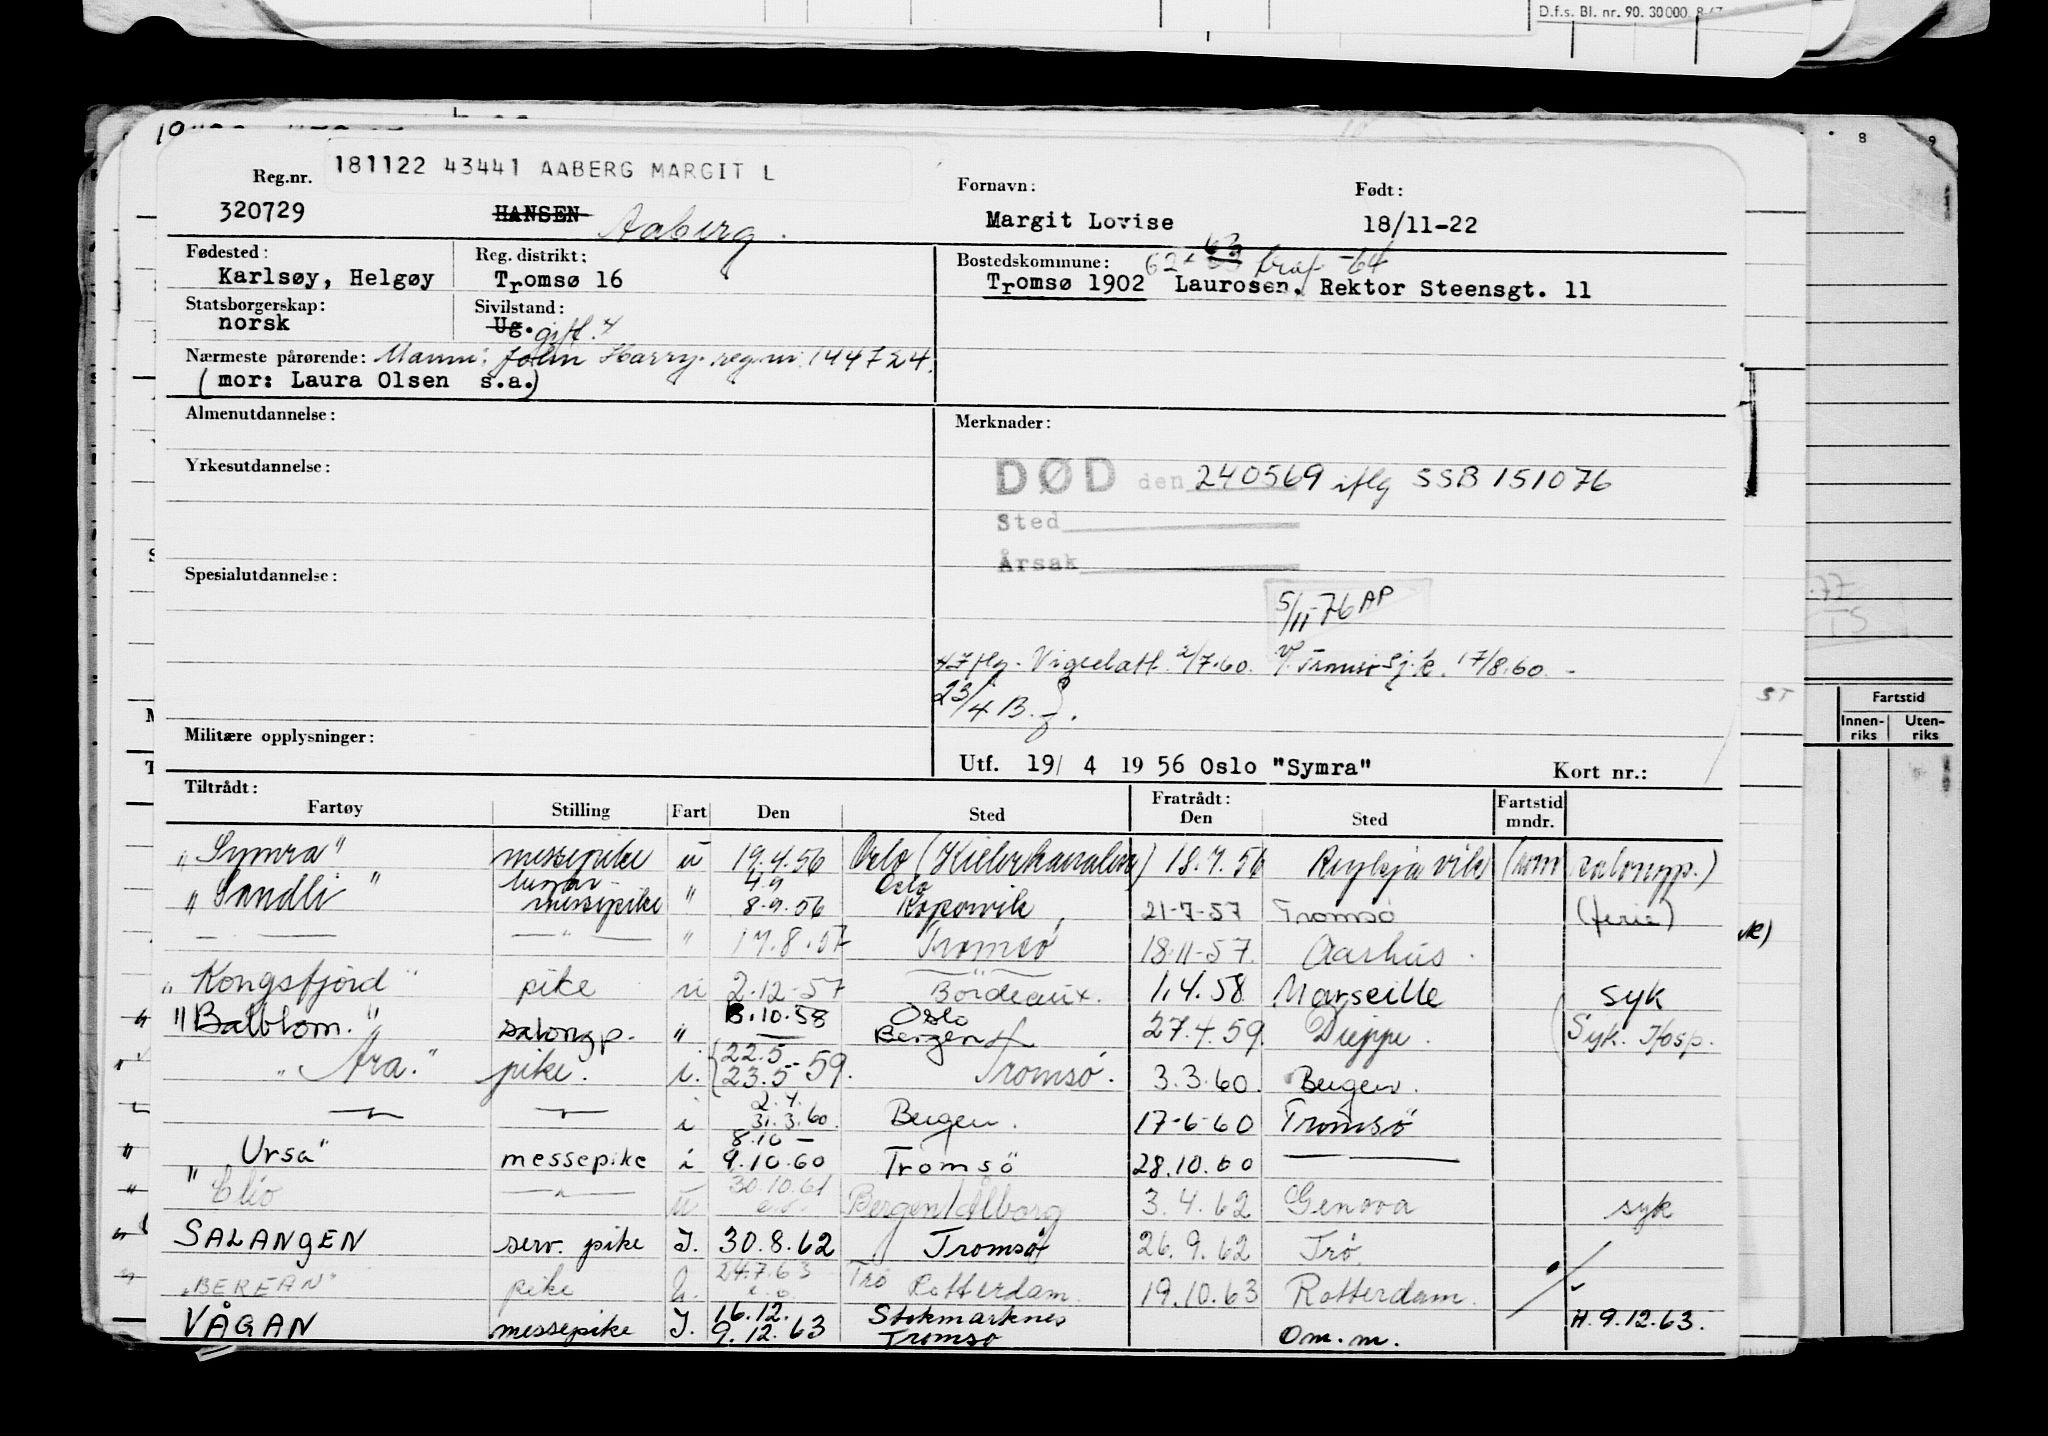 D.f.s. Bl. nr. 90. 30000 8-67
8 9
Reg.nr. 181122 43441 AABERG MARGIT L
Fornavn: Født:
320729 HANSEN Aaberg. Margit Lovise 18/11-22
Fødested: Reg. distrikt: Bostedskommune: 62- 63 63 -64
Karlsøy, Helgøy Tromsø 16 Tromsø 1902 Laurosen. Rektor Steensgt. 11
Statsborgerskap: Sivilstand:
norsk Ug. gift.
Nærmeste pårørende: Mann: John Harry. reg.nr. 144724.
(mor: Laura Olsen s.a.)
Almenutdannelse: Merknader:
Yrkesutdannelse:
DØD den 240569 iflg SSB 151076
Sted
Årsak
Spesialutdannelse:
5/11-76 AP
iflg. Vigselatt. 2/7-60. Tromsø Sj.k. 17/8.60.
23/4 B.
Militære opplysninger:
Utf. 19/ 4 19 56 Oslo "Symra" Kort nr.:
Tiltrådt: Fratrådt:
Fartøy Stilling Fart Den Sted Den Sted Fartstid mndr.
"Symra" messepike u 19.4.56 Oslo (Kielerkanalen) 18.7.56 Reykjavik (som salongp.)
"Sandli" lugar- messepike " 4.9 8.9.56 Oslo Kopervik 21-7-57 Tromsø (ferie)
— " — — " — " 17.8.57 Tromsö 18.11-57. Aarhus.
"Kongsfjord" pike u 2.12-57 Bordeaux. 1.4.58 Marseille syk
"Balblom." salongp. " 8.10.58 Oslo Bergen 27.4.59. Dieppe. Syk. Hosp.
"Ara." pike. i. 22.5 23.5-59. Tromsø. 3.3.60. Bergen.
— " — — " — i 2.4. 31.3.60. Bergen. 17-6-60 Tromsö
"Ursa" messepike i 8.10 — 9.10.60 Tromsö 28.10.60 — —
"Clio — " — u 30.10.61 Bergen/Ålborg 3.4.62 Genova syk
SALANGEN serv. pike I. 30.8.62 Tromsø 26.9.62 Trö.
"BEREAN" pike U. 24.7.63 Trö Rotterdam. 19.10.63 Rotterdam.
VÅGAN messepike I. 16.12. 9.12.63 Stokmarknes Tromsø Om.m. H. 9.12.63.
Fartstid
Innen- Uten-
riks riks